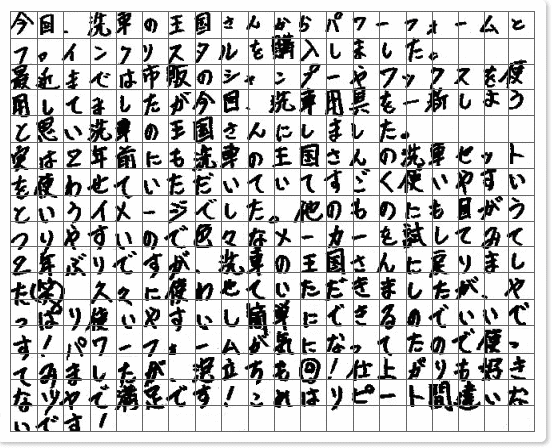 今回、洗車の王国さんからパワーフォームと
ファインクリスタルを購入しました。
最近までは市販のシャンプーやワックスを使
用してましたが今回、洗車用具を一新しよう
と思い洗車の王国さんにしました。
実は2年前にも洗車の王国さんの洗車セット
を使わせていただいていてすごく使いやすい
というイメージでした。他のものにも目がう
つりやすいので色々なメーカーを試してみて
2年ぶりですが、洗車の王国さんに戻りまし
た(笑)久々に使わせていただきましたが、や
っぱり使いやすいし簡単にできるのでいいで
す!パワーフォームが気になってたので使っ
てみましたが、泡立ちも◎!仕上がりも好き
なツヤで満足です!これはリピート間違いな
いです!